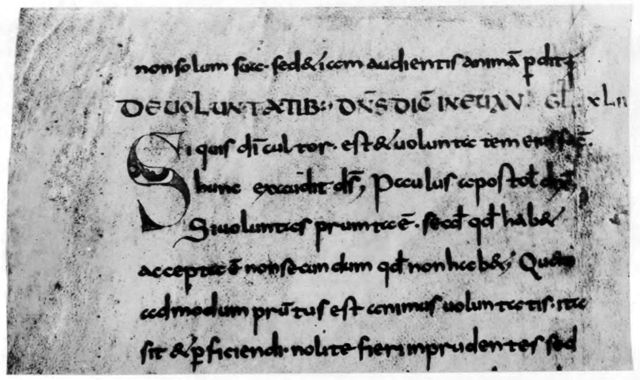 non solum suā. sed & iam audientis animā ꝑdit
DE VOLUNTATIB: DN̄S DIC̄ IN EUAN GL xLII
Si quis dī cultor. est & uoluntatem eius
hunc exaudit dn̄s, Paulus apostol
Si uoluntas prumta ē. secd̄ qd̄ hab&
accepta ē non secundum qd̄ non hab&; Quem
admodum prūtus est animus uoluntatis. ita
sit & ꝑficiendi. nolite fieri inprudentes sed